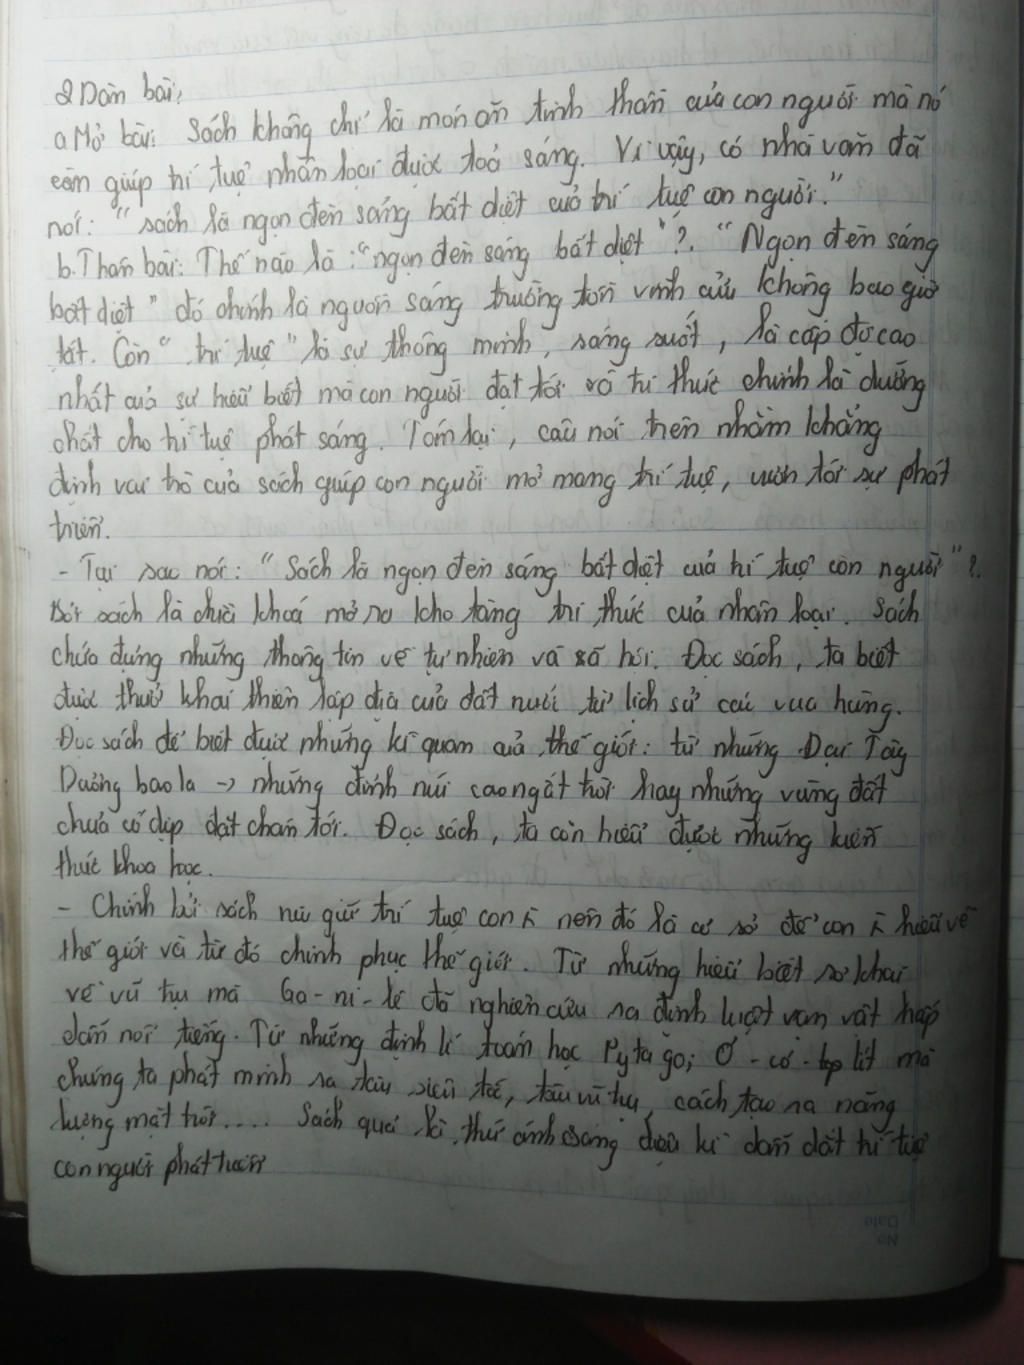 2 Dàn bài:
a Mở bài: Sách không chỉ là món ăn tinh thần của con người mà nó
còn giúp trí tuệ nhân loại được toả sáng. Vì vậy, có nhà văn đã
nói: "sách là ngọn đèn sáng bất diệt của trí tuệ con người."
b. Thân bài: Thế nào là: "ngọn đèn sáng bất diệt"?. "Ngọn đèn sáng
bất diệt" đó chính là nguồn sáng trường tồn vĩnh cửu không bao giờ
tắt. Còn "trí tuệ" là sự thông minh, sáng suốt, là cấp độ cao
nhất của sự hiểu biết mà con người đạt tới và tri thức chính là dưỡng
chất cho trí tuệ phát sáng. Tóm lại, câu nói trên nhằm khẳng
định vai trò của sách giúp con người mở mang trí tuệ, vươn tới sự phát
triển.
- Tại sao nói: "Sách là ngọn đèn sáng bất diệt của trí tuệ con người"?.
Bởi sách là chìa khoá mở ra kho tàng tri thức của nhân loại. Sách
chứa đựng những thông tin về tự nhiên và xã hội. Đọc sách, ta biết
được thuở khai thiên lập địa của đất nước từ lịch sử các vua hùng.
Đọc sách để biết được những kì quan của thế giới: từ những Đại Tây
Dương bao la -> những đỉnh núi cao ngất trời hay những vùng đất
chưa có dịp đặt chân tới. Đọc sách, ta còn hiểu được những kiến
thức khoa học.
- Chính bởi sách nú giữ trí tuệ con ꝉ nên đó là cơ sở để con ꝉ hiểu về
thế giới và từ đó chinh phục thế giới. Từ những hiểu biết sơ khai
về vũ trụ mà Ga-ni-lê đã nghiên cứu ra định luật vạn vật hấp
dẫn nổi tiếng. Từ những định lí toán học Pytago; Ơ-cơ-lit mà
chúng ta phát minh ra tàu siêu tốc, tàu vũ trụ, cách tạo ra năng
lượng mặt trời.... Sách quả là thứ ánh sáng diệu kì dẫn dắt trí tuệ
con người phát triển